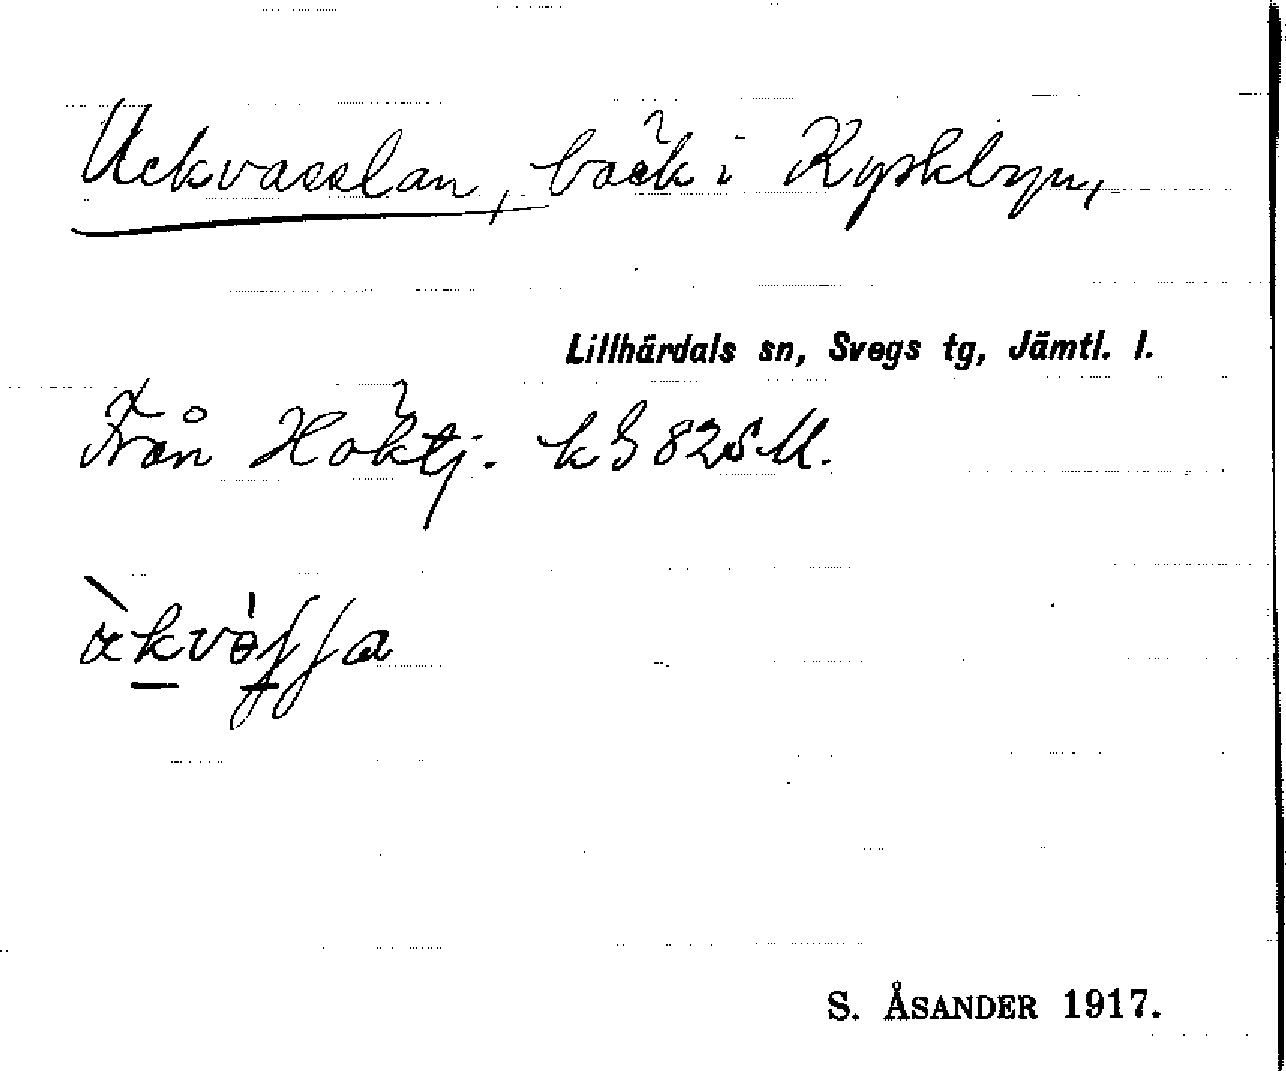 Uckvasslan, bäck i Ryskbyn,
Lillhärdals sn, Svegs tg, Jämtl. l.
Från Höktj. k G 82SM.
S. ÅSANDER 1917.